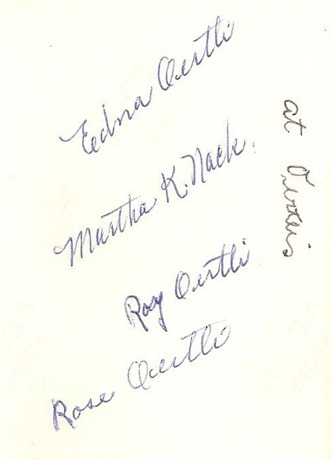 Edna Oertli
Martha K. Nack.
Roy Oertli
Rose Oertli
at